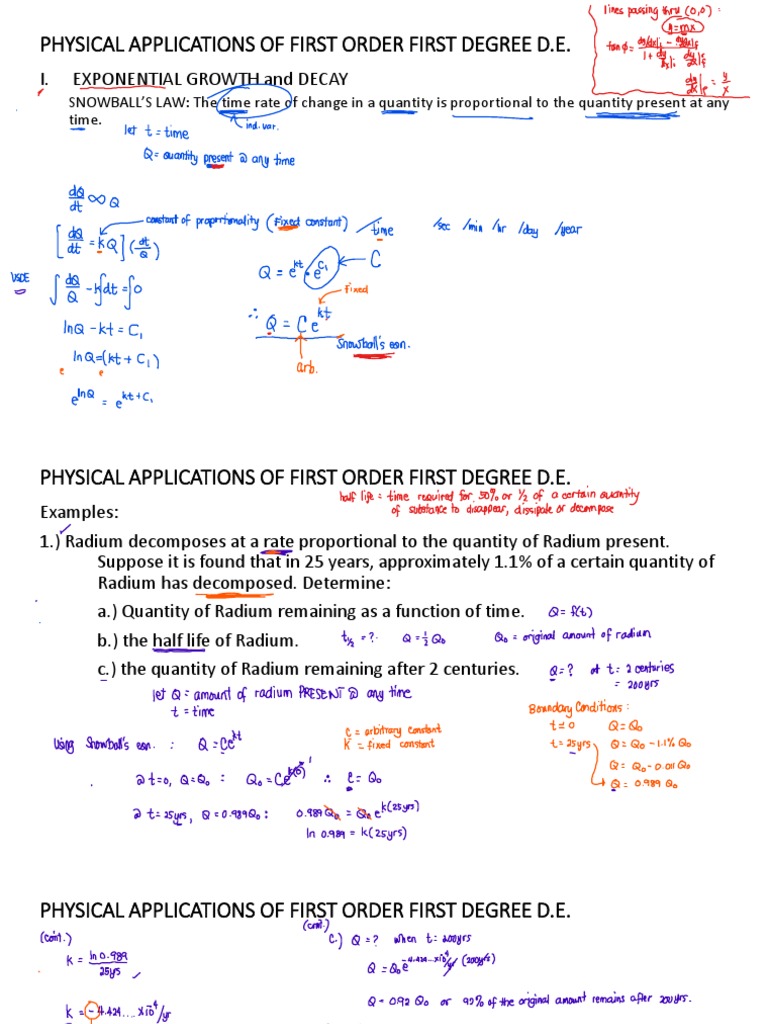 lines passing thru (0,0) :
y = mx
tan ϕ = dy/dx|i - dy/dx|f / 1 + dy/dx|i dy/dx|f
dy/dx|f = y/x
PHYSICAL APPLICATIONS OF FIRST ORDER FIRST DEGREE D.E.
I. EXPONENTIAL GROWTH and DECAY
SNOWBALL'S LAW: The time rate of change in a quantity is proportional to the quantity present at any
time.
ind. var.
let t = time
Q = quantity present @ any time
dQ/dt ∞ Q
constant of proportionality (Fixed constant)
/time /sec /min /hr /day /year
[dQ/dt = kQ](dt/Q)
VSDE
∫ dQ/Q - k∫dt = ∫0
lnQ - kt = C₁
lnQ = (kt + C₁)
e e
e^lnQ = e^kt+C₁
Q = e^kt • e^C₁ C
Fixed
∴ Q = Ce^kt
Snowball's eqn.
arb.
PHYSICAL APPLICATIONS OF FIRST ORDER FIRST DEGREE D.E.
half life = time required for 50% or 1/2 of a certain quantity
of substance to disappear, dissipate or decompose
Examples:
1.) Radium decomposes at a rate proportional to the quantity of Radium present.
Suppose it is found that in 25 years, approximately 1.1% of a certain quantity of
Radium has decomposed. Determine:
a.) Quantity of Radium remaining as a function of time. Q = f(t)
b.) the half life of Radium. t½ = ? Q = ½ Q₀ Q₀ = original amount of radium
c.) the quantity of Radium remaining after 2 centuries. Q = ? at t = 2 centuries
= 200 yrs
let Q = amount of radium PRESENT @ any time
t = time
Boundary Conditions :
t = 0 Q = Q₀
t = 25 yrs Q = Q₀ - 1.1% Q₀
Q = Q₀ - 0.011 Q₀
Q = 0.989 Q₀
C = arbitrary constant
K = fixed constant
Using Snowball's eqn. : Q = Ce^kt
@ t=0, Q=Q₀ : Q₀ = Ce^k(0) 1 ∴ C = Q₀
@ t = 25yrs, Q = 0.989Q₀ : 0.989 Q₀ = Q₀ e^k(25yrs)
ln 0.989 = k(25yrs)
PHYSICAL APPLICATIONS OF FIRST ORDER FIRST DEGREE D.E.
(cont.)
k = ln 0.989 / 25yrs
k = -4.424... x10⁻⁴/yr
(cont.)
c.) Q = ? when t = 200yrs
Q = Q₀e^-4.424...x10⁻⁴/yr (200yrs)
Q = 0.92 Q₀ or 92% of the original amount remains after 200 yrs.